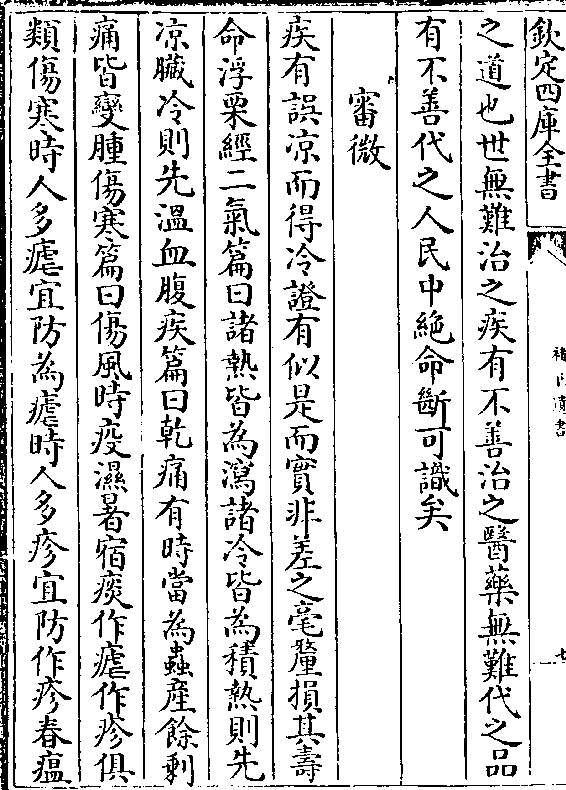 欽定四庫全書
褚氏遺書
七
之道也世無難治之疾有不善治之醫藥無難代之品
有不善代之人民中絶命斷可識矣
審微
疾有誤凉而得冷證有似是而實非差之毫釐損其壽
命浮栗經二氣篇曰諸熱皆為瀉諸冷皆為積熱則先
凉臟冷則先溫血腹疾篇曰乾痛有時當為蟲産餘刺
痛皆變腫傷寒篇曰傷風時疫濕暑宿痰作瘧作疹俱
類傷寒時人多瘧宜防為瘧時人多疹宜防作疹春瘟